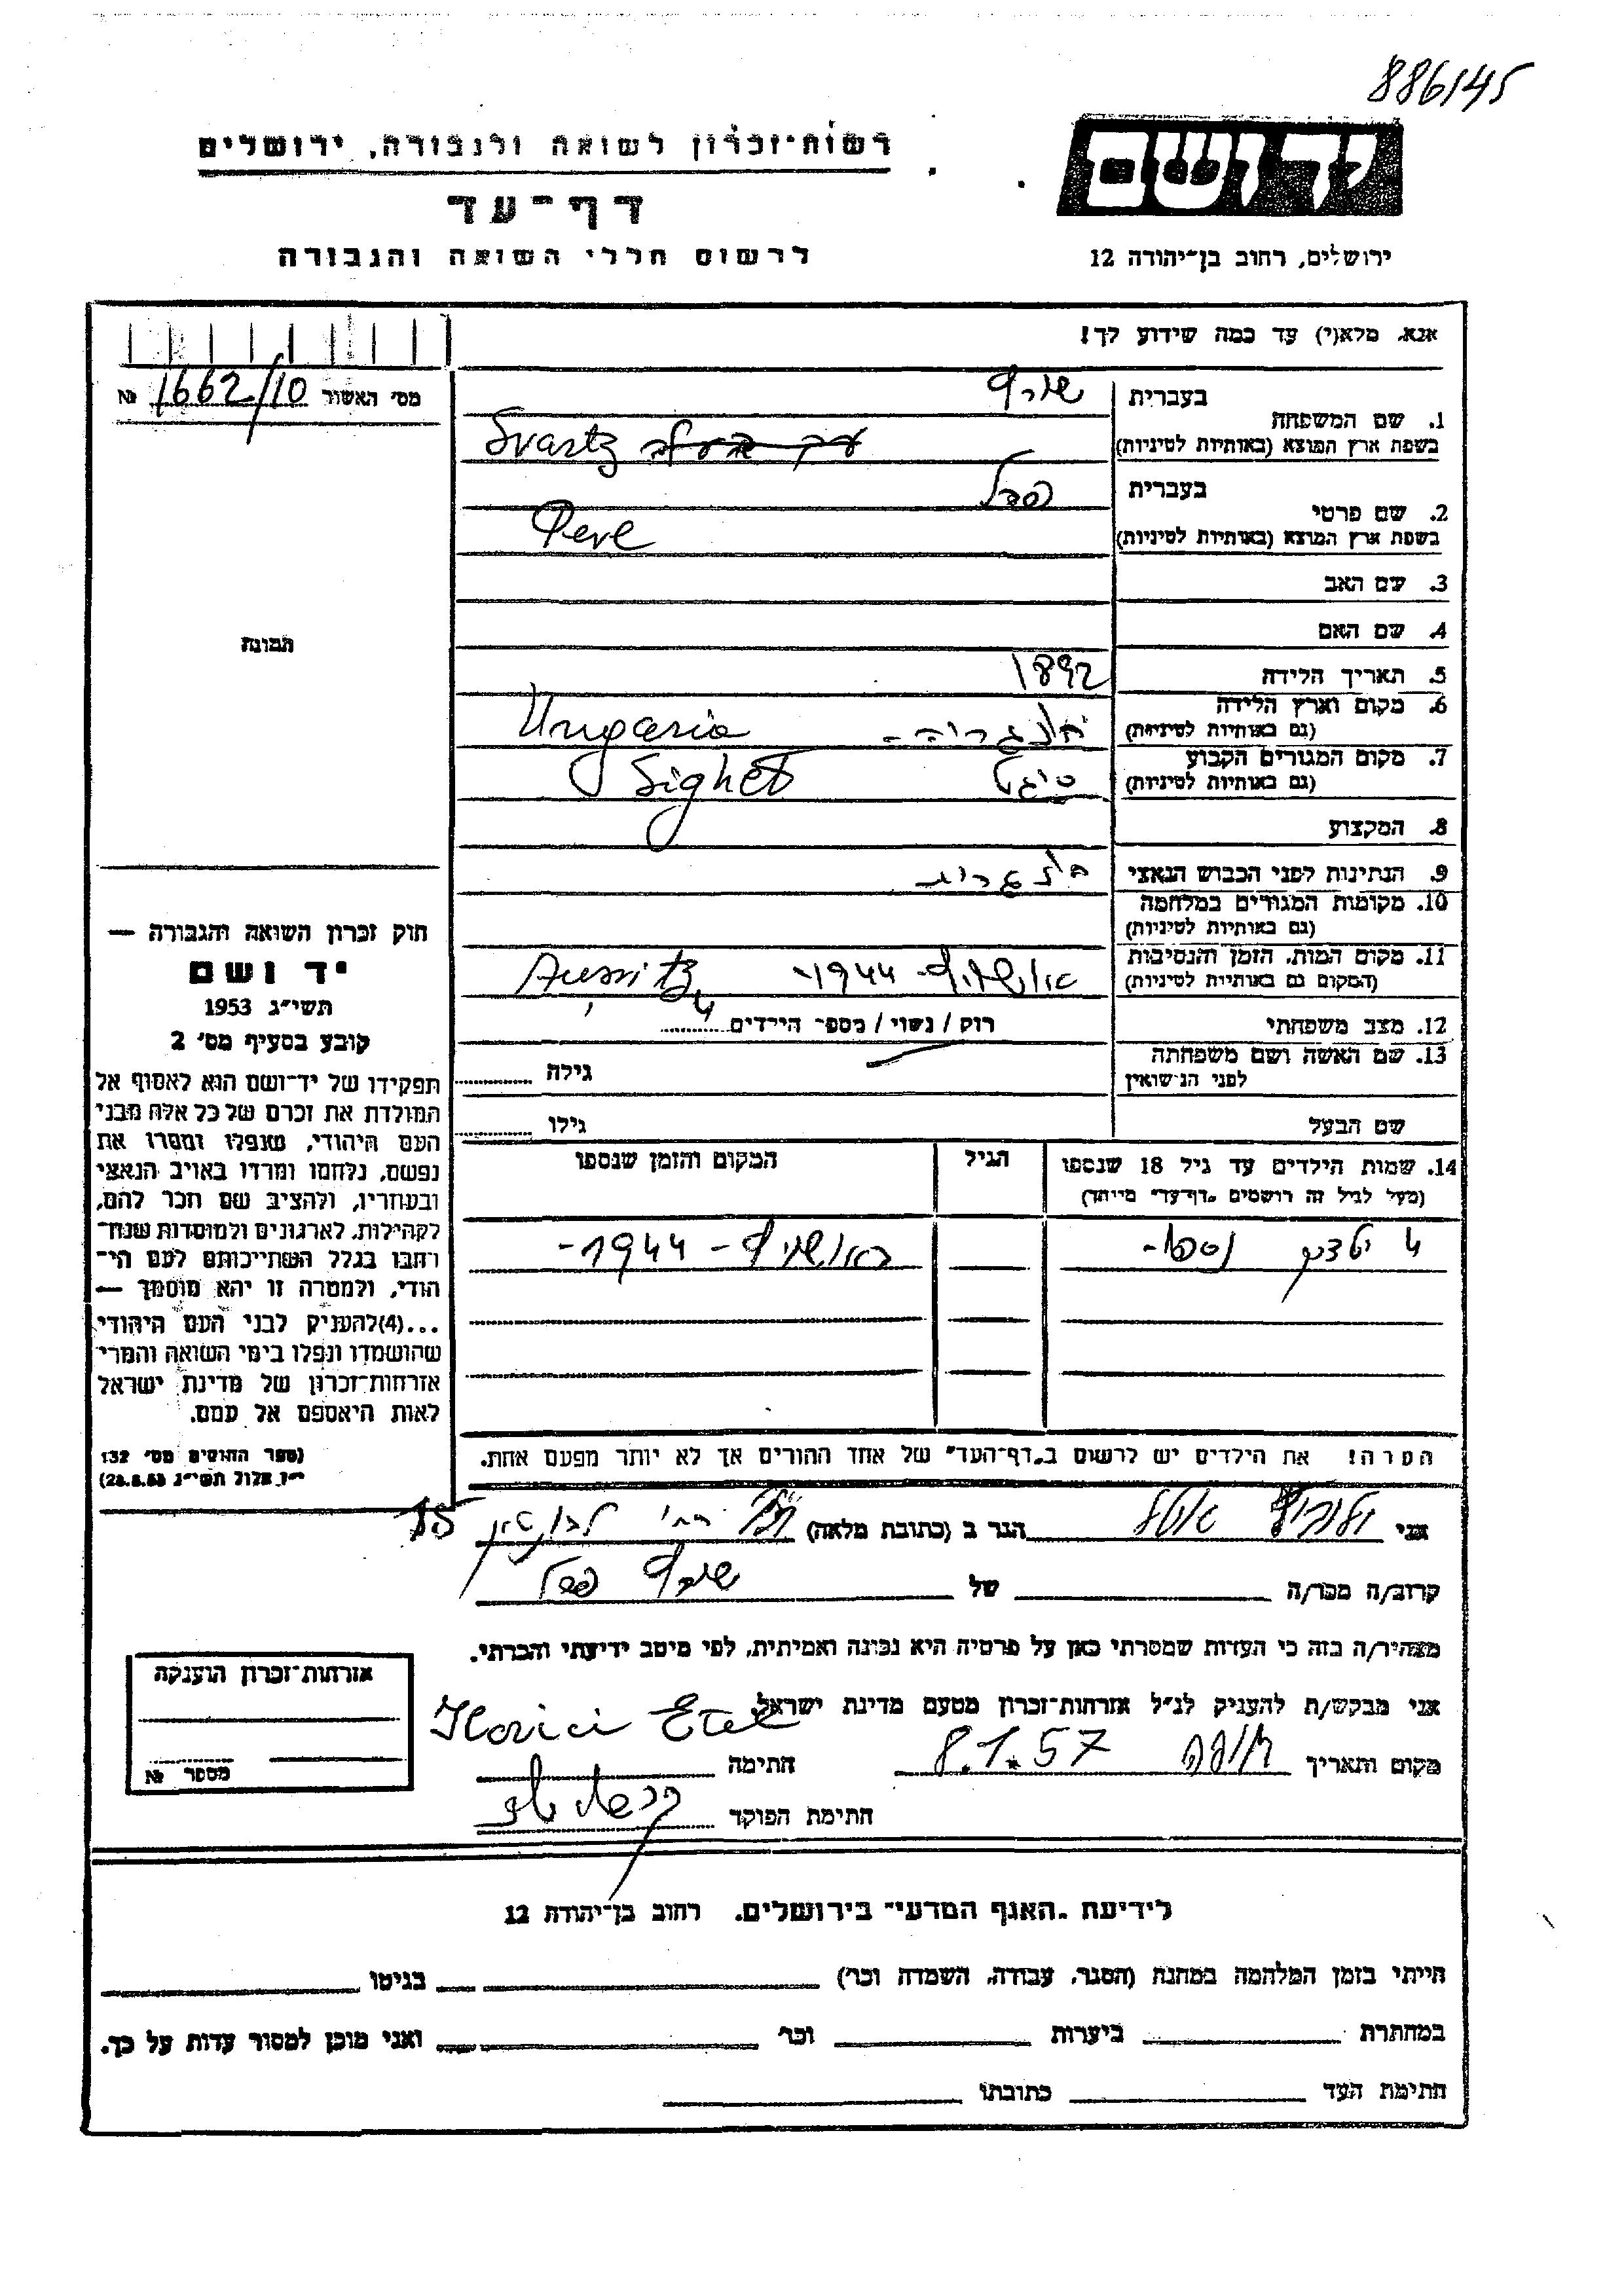 886145
יד ושם
רשות-זכרון לשואה ולגבורה, ירושלים
דף-עד
לרשום חללי השואה והגבורה
ירושלים, רחוב בן-יהודה 12
אנא, מלא(י) עד כמה שידוע לך!
מס' האשור 1662/10 №
תמונה
1. שם המשפחה
בעברית
שורץ
בשפת ארץ המוצא (באותיות לטיניות)
Svartz
2. שם פרטי
בעברית
פרל
בשפת ארץ המוצא (באותיות לטיניות)
Perl
3. שם האב
4. שם האם
5. תאריך הלידה 1892
6. מקום וארץ הלידה
(גם באותיות לטיניות)
Ungaria
7. מקום המגורים הקבוע
(גם באותיות לטיניות)
סיגט Sighet
8. המקצוע
9. הנתינות לפני הכבוש הנאצי
10. מקומות המגורים במלחמה
(גם באותיות לטיניות)
11. מקום המות, הזמן והנסיבות
(המקום גם באותיות לטיניות)
אושויץ - 1944 -
12. מצב משפחתי
רוק / נשוי / מספר הילדים 4
13. שם האשה ושם משפחתה
לפני הנישואין
גילה
שם הבעל
גילו
14. שמות הילדים עד גיל 18 שנספו
(מעל לגיל זה רושמים "דף-עד" מיוחד)
הגיל
המקום והזמן שנספו
4 ילדים נספו -
באושויץ - 1944 -
הערה! את הילדים יש לרשום ב"דף-העד" של אחד ההורים אך לא יותר מפעם אחת.
חוק זכרון השואה והגבורה —
יד ושם
תשי"ג 1953
קובע בסעיף מס' 2
תפקידו של יד-ושם הוא לאסוף אל
המולדת את זכרם של כל אלה מבני
העם היהודי, שנפלו ומסרו את
נפשם, נלחמו ומרדו באויב הנאצי
ובעוזריו, ולהציב שם וזכר להם,
לקהילות, לארגונים ולמוסדות שנח-
רבו בגלל השתייכותם לעם הי-
הודי, ולמטרה זו יהא מוסמך —
...(4)להעניק לבני העם היהודי
שהושמדו ונפלו בימי השואה והמרי
אזרחות-זכרון של מדינת ישראל
לאות היאספם אל עמם.
(ספר החוקים מס' 132
י"ז אלול תשי"ג 28.8.53)
אני
הגר ב (כתובת מלאה)
קרוב/ה מכר/ה של שורץ פרל
מצהיר/ה בזה כי העדות שמסרתי כאן על פרטיה היא נכונה ואמיתית, לפי מיטב ידיעתי והכרתי.
אני מבקש/ת להעניק לנ"ל אזרחות-זכרון מטעם מדינת ישראל
מקום ותאריך חיפה 8.1.57
חתימה Ilovici Etel
חתימת הפוקד
אזרחות-זכרון הוענקה
מספר №
לידיעת "האגף המדעי" בירושלים, רחוב בן-יהודה 12
הייתי בזמן המלחמה במחנה (הסגר, עבודה, השמדה וכו') בגיטו
במחתרת ביערות וכו' ואני מוכן למסור עדות על כך.
חתימת העד כתובתו